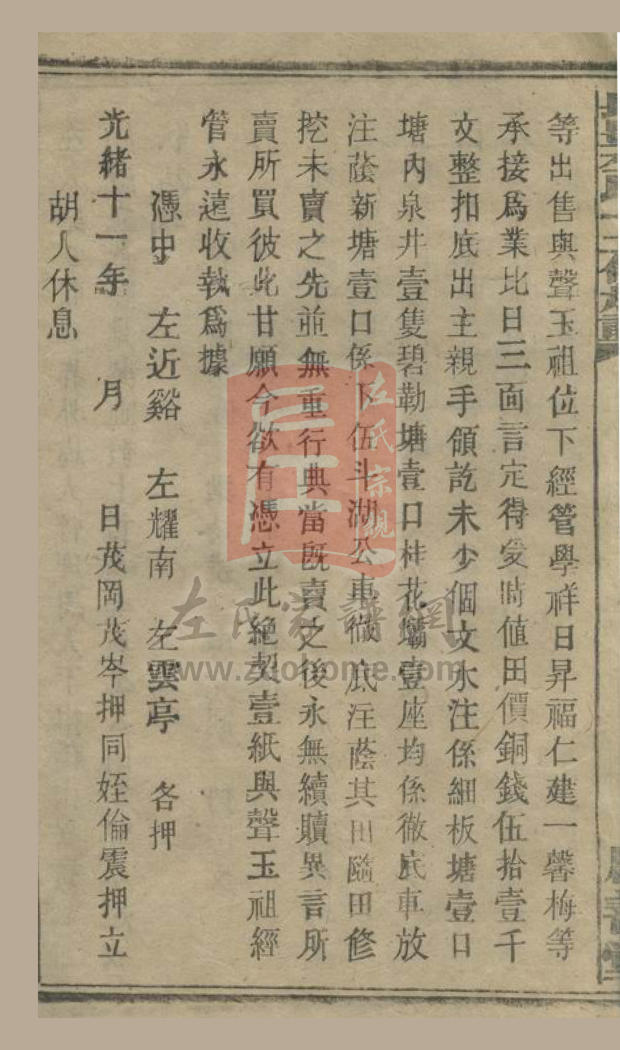 等出售與聲玉祖位下經管學祥日昇福仁建一馨梅等
承接爲業比日三面言定得受時値田價銅錢伍拾壹千
文整扣底出主親手領訖未少個文水注係細板塘壹口
塘內泉井壹隻碧勒塘壹口桂花壩壹座均係徹底車放
注蔭新塘壹口係下伍斗湖公車徹底注蔭其田隨田修
挖未賣之先並無重行典當旣賣之後永無續贖異言所
賣所買彼此甘願今欲有憑立此絕契壹紙與聲玉祖經
管永遠收執爲據
憑中 左近谿 左耀南 左雲亭 各押
光緒十一年 月 日茂岡茂岑押同姪倫震押立
胡人休息
左氏宗親
左氏家譜網